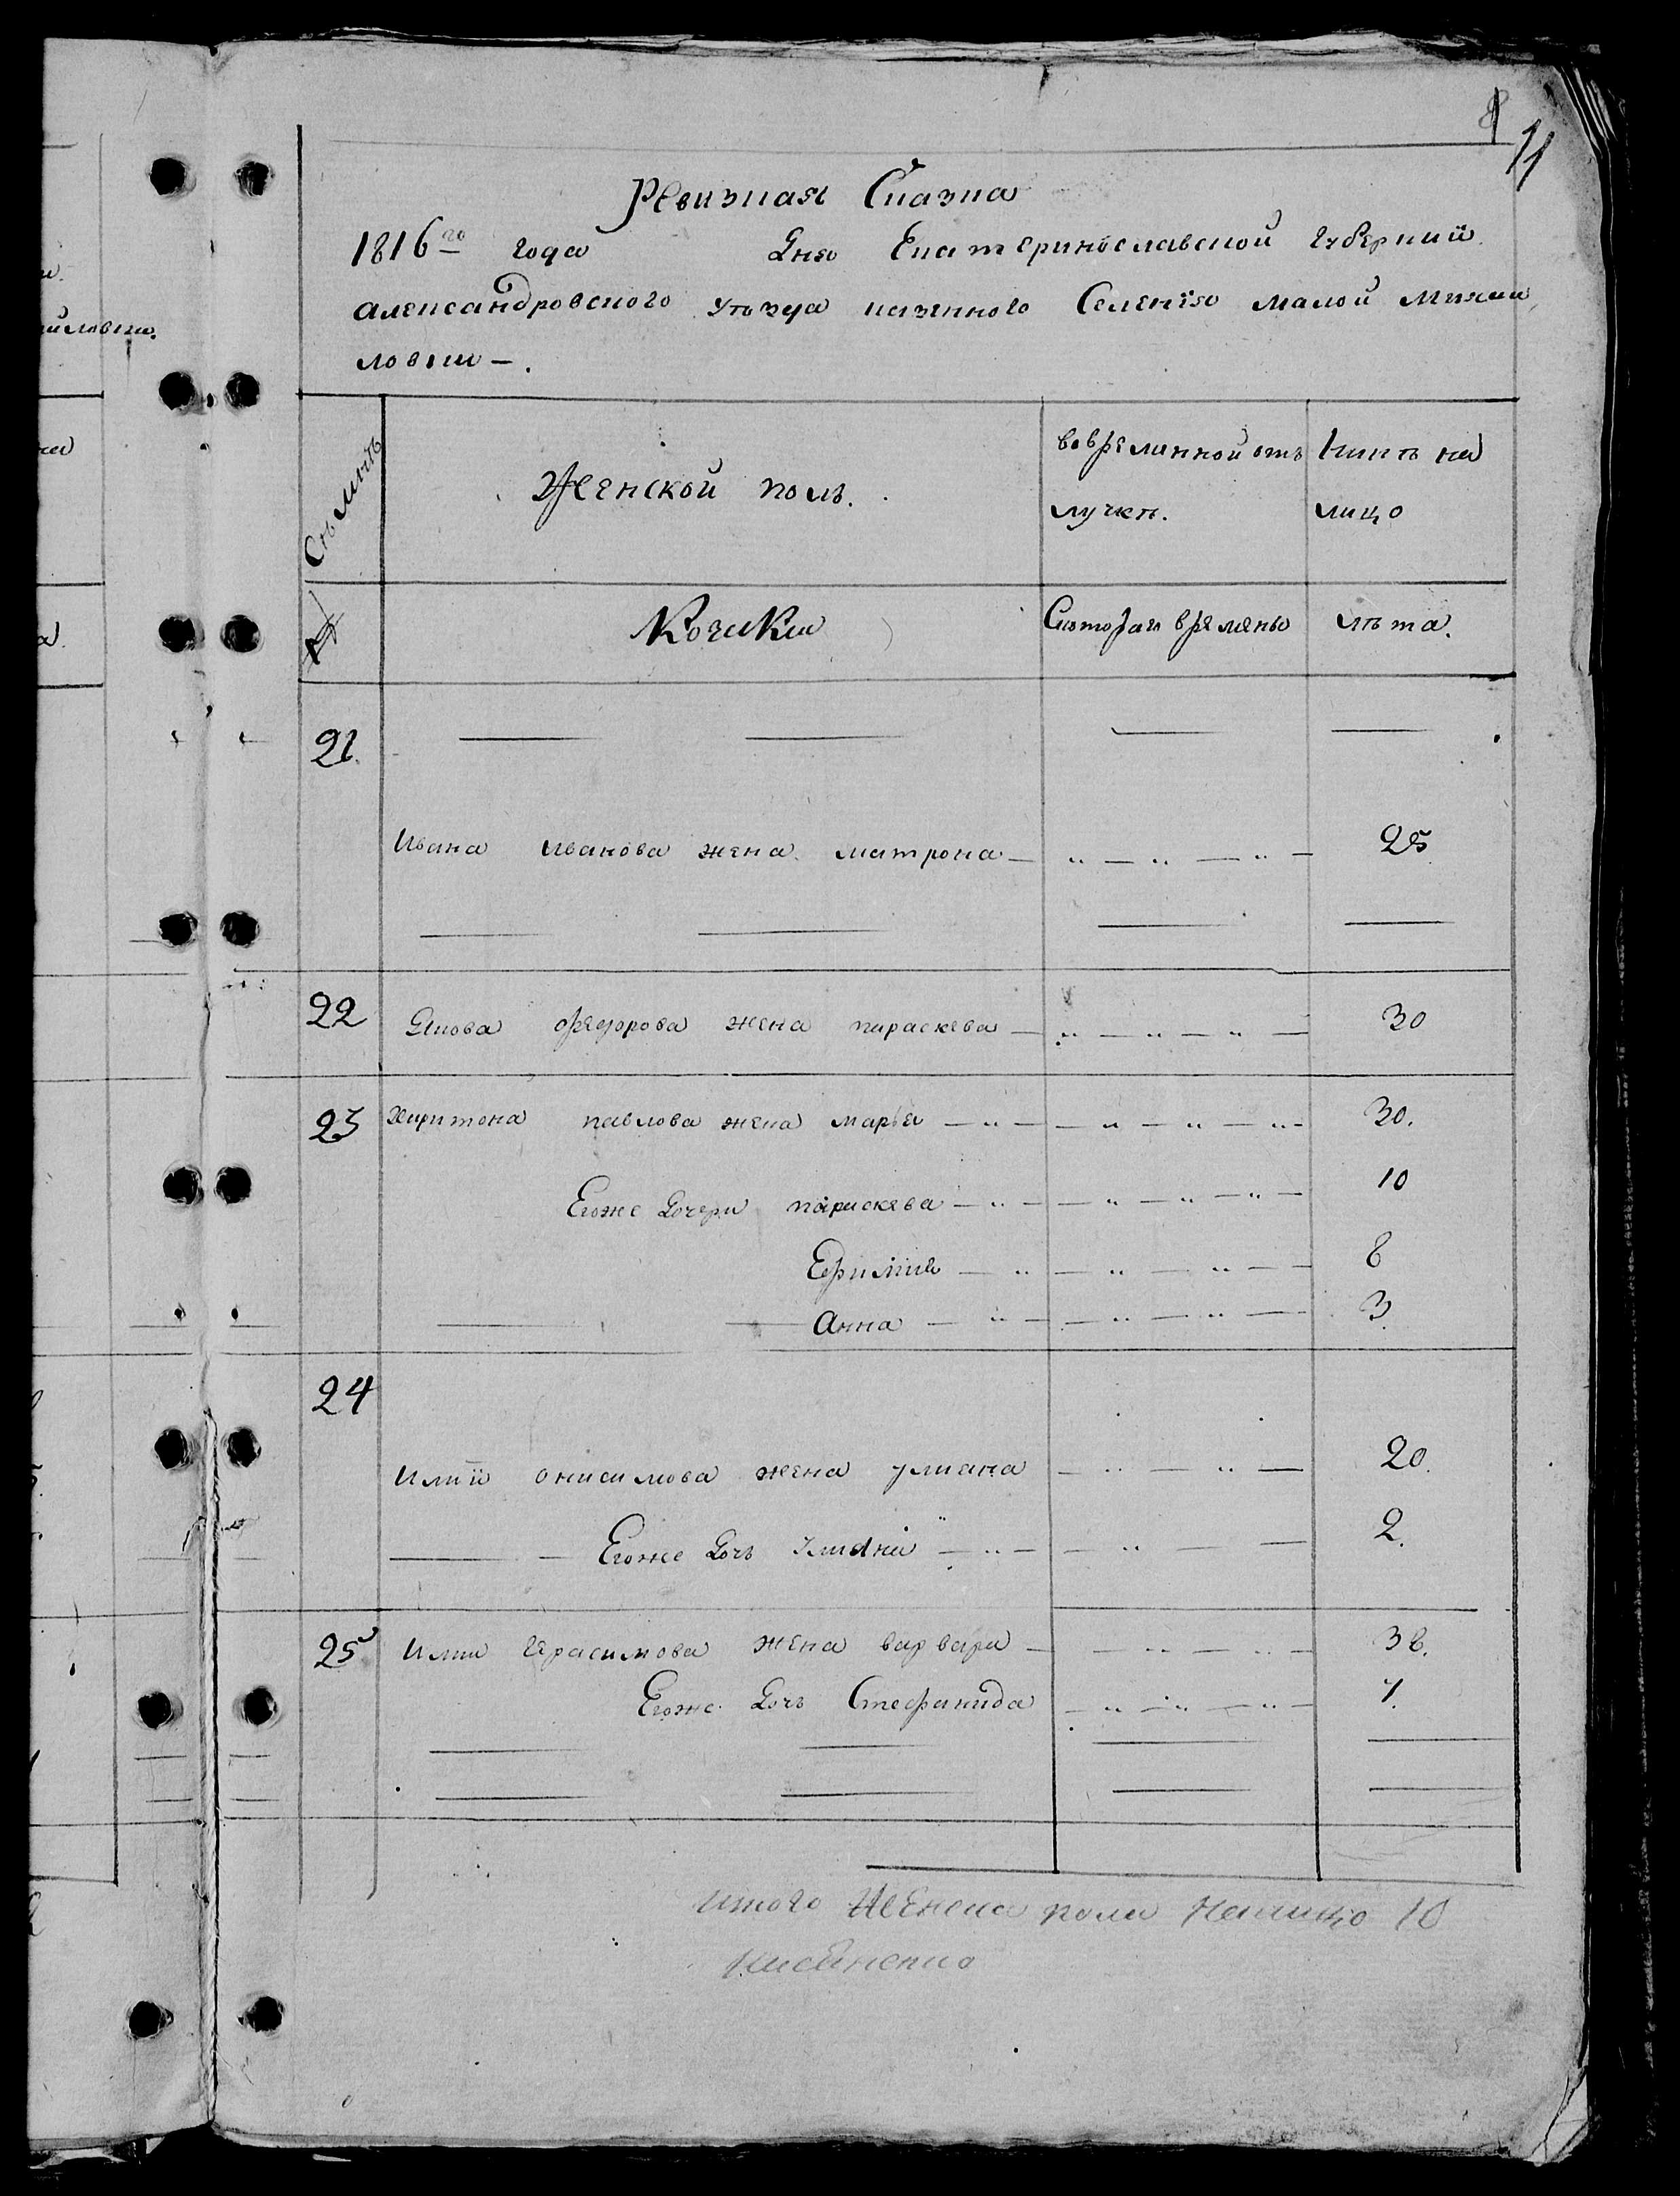 11
Ревизная Сказка
1816го года Дня Екатеринославской губернии
александровского уѣзда казенного Селенія малой михаи
ловки —.
Семьи
Женской полъ.
вовременной отъ
лучкѣ.
Нынѣ на
лицо
№
Которагo времяни
лѣта.
21.
Ивана Иванова жена матрона 25
22 Якова федорова жена параскева 30
23 Харитона павлова жена марья 30.
Егоже дочери параскева 10
Ефимия 8
анна 3
24
Илии онисимова жена улиана 20.
Егоже дочь 2.
25 Илии Герасимова жена варвара 38.
Егоже дочь Стефанида 7.
итого женска пола наличо 10